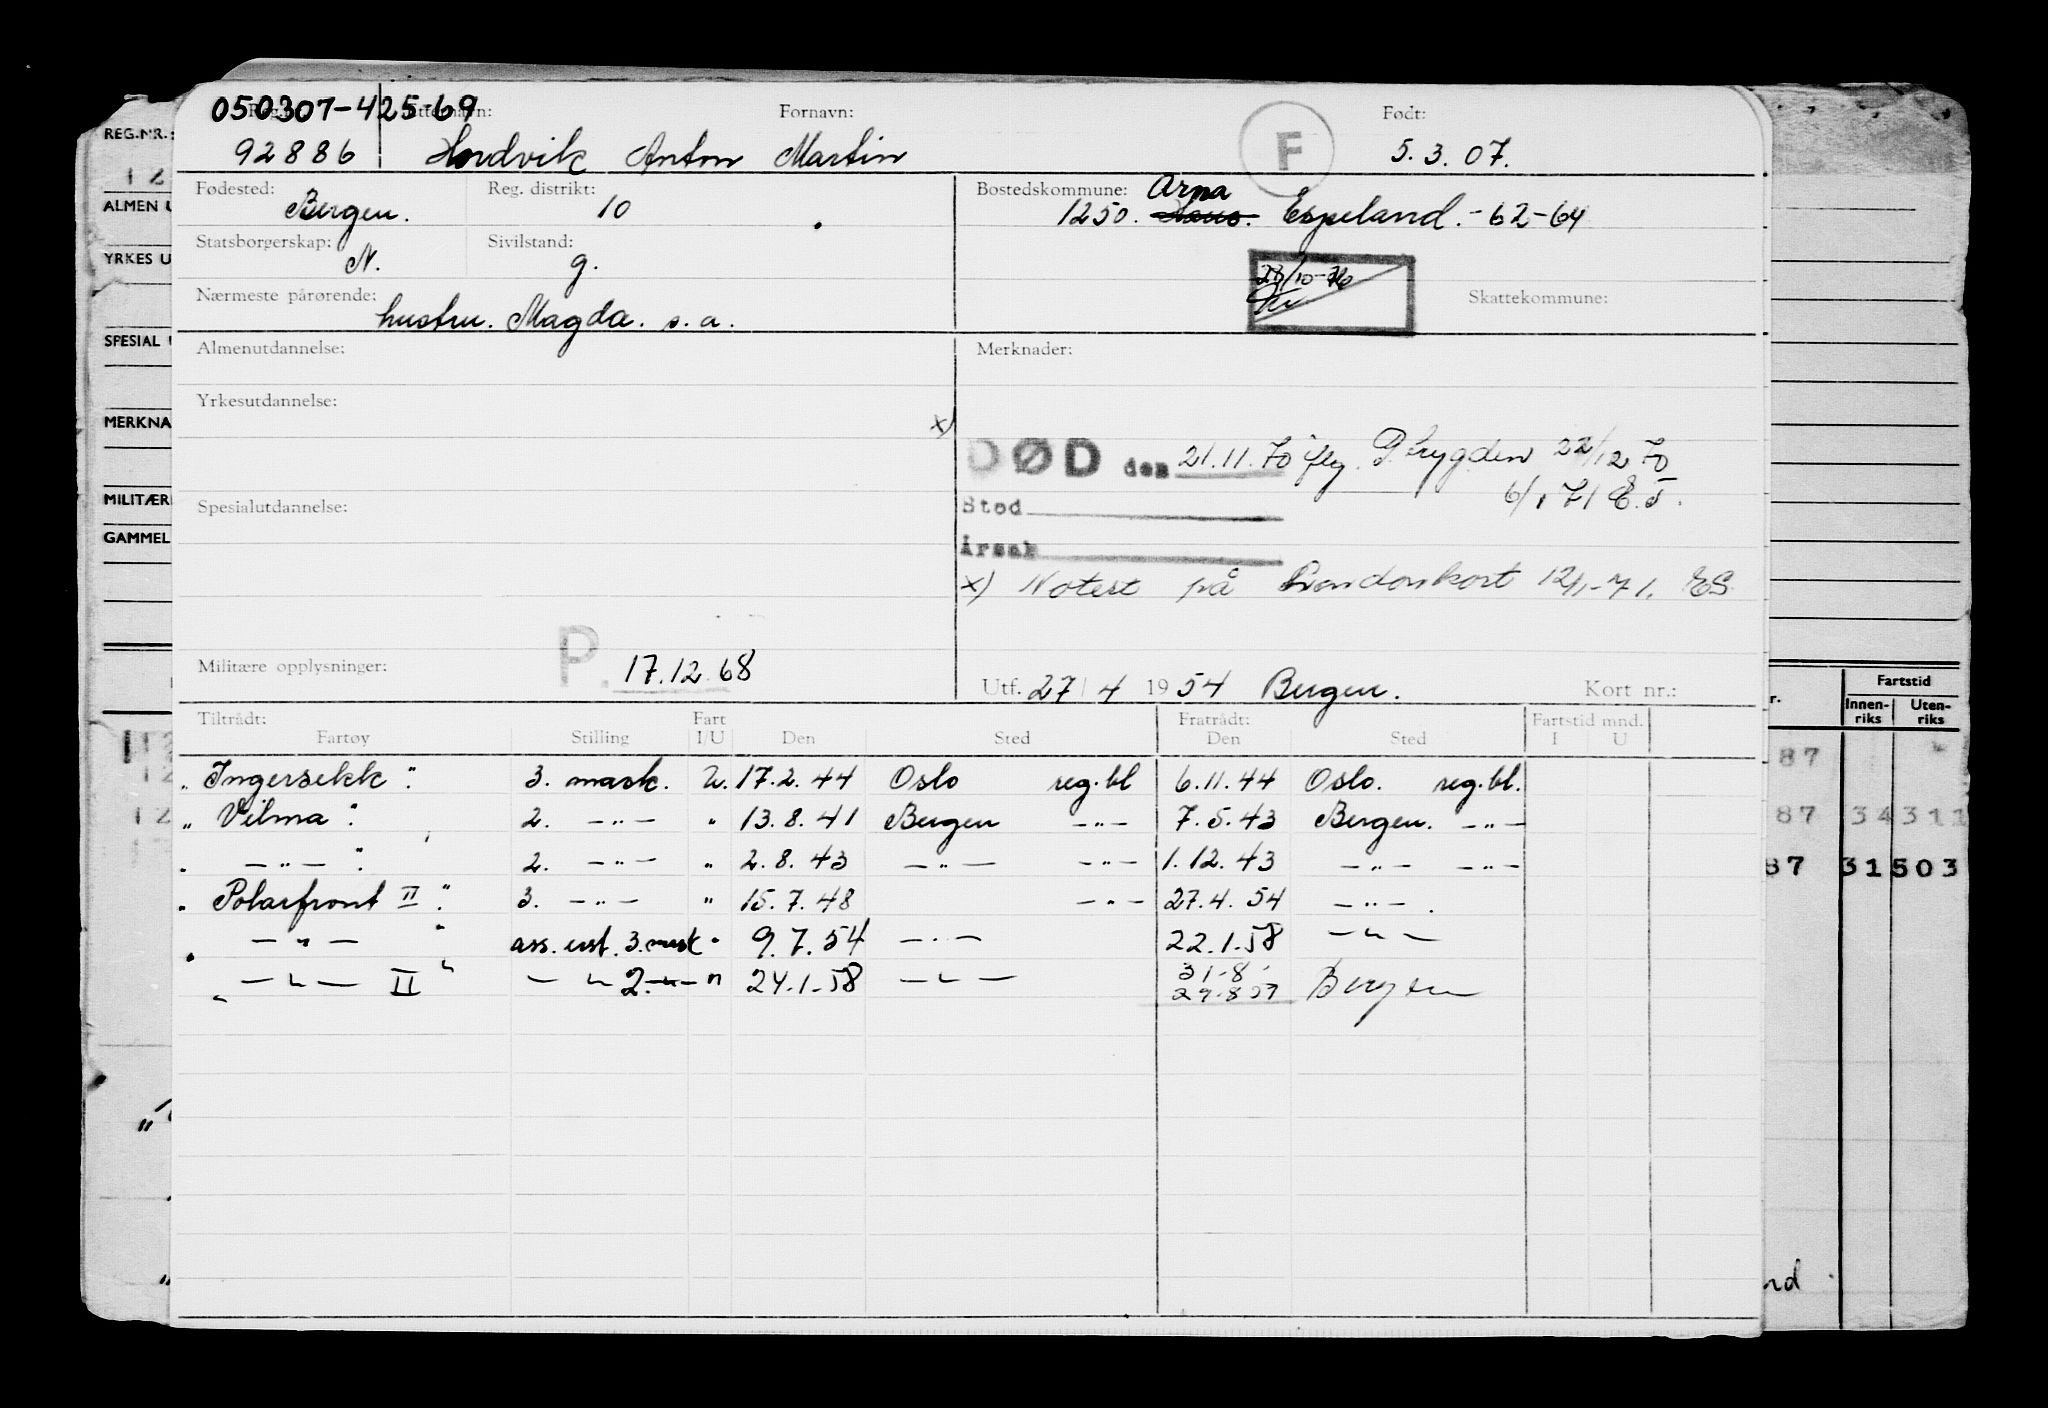 050307-425-69
Fornavn: Født:
92886 Hordvik Anton Martin F 5.3.07.
Fødested: Reg. distrikt: Bostedskommune: Arna
Bergen. 10 1250. Espeland.-62-64
Statsborgerskap: Sivilstand:
N. g.
Nærmeste pårørende: Skattekommune:
hustru. Magda. s.a.
Almenutdannelse: Merknader:
Yrkesutdannelse:
x)
DØD den 21.11.70 flg. P.trygden 22/12 70
6/1 71 E.S.
Spesialutdannelse: Sted
Årsak
x) Notert på Londonkort 12/1-71. ES
Militære opplysninger: P. 17.12.68
Utf. 27/4 1954 Bergen. Kort nr.:
Tiltrådt: Fart Fratrådt: Fartstid mnd.
Fartøy Stilling I/U Den Sted Den Sted I U
"Ingerseks" 3. mask. U. 17.2.44 Oslo reg.bl 6.11.44 Oslo. reg.bl.
"Vilma" 2. -"- " 13.8.41 Bergen -"- 7.5.43 Bergen. -"-
" -"- " 2. -"- " 2.8.43 -"- -"- 1.12.43 -"- -"-
"Polarfront II" 3. -"- " 15.7.48 -"- 27.4.54 -"-.
" -"- " ass. erst. 3. mask " 9.7.54 -"- 22.1.58 -"-
" -"- II " -"- 2. -"- " 24.1.58 -"- 31-8- Bergen
REG.NR.:
ALMEN U
YRKES U
SPESIAL
MERKNA
MILITÆR
GAMMEL
Fartstid
Innen-riks Uten-riks
87
87 34311
87 31503